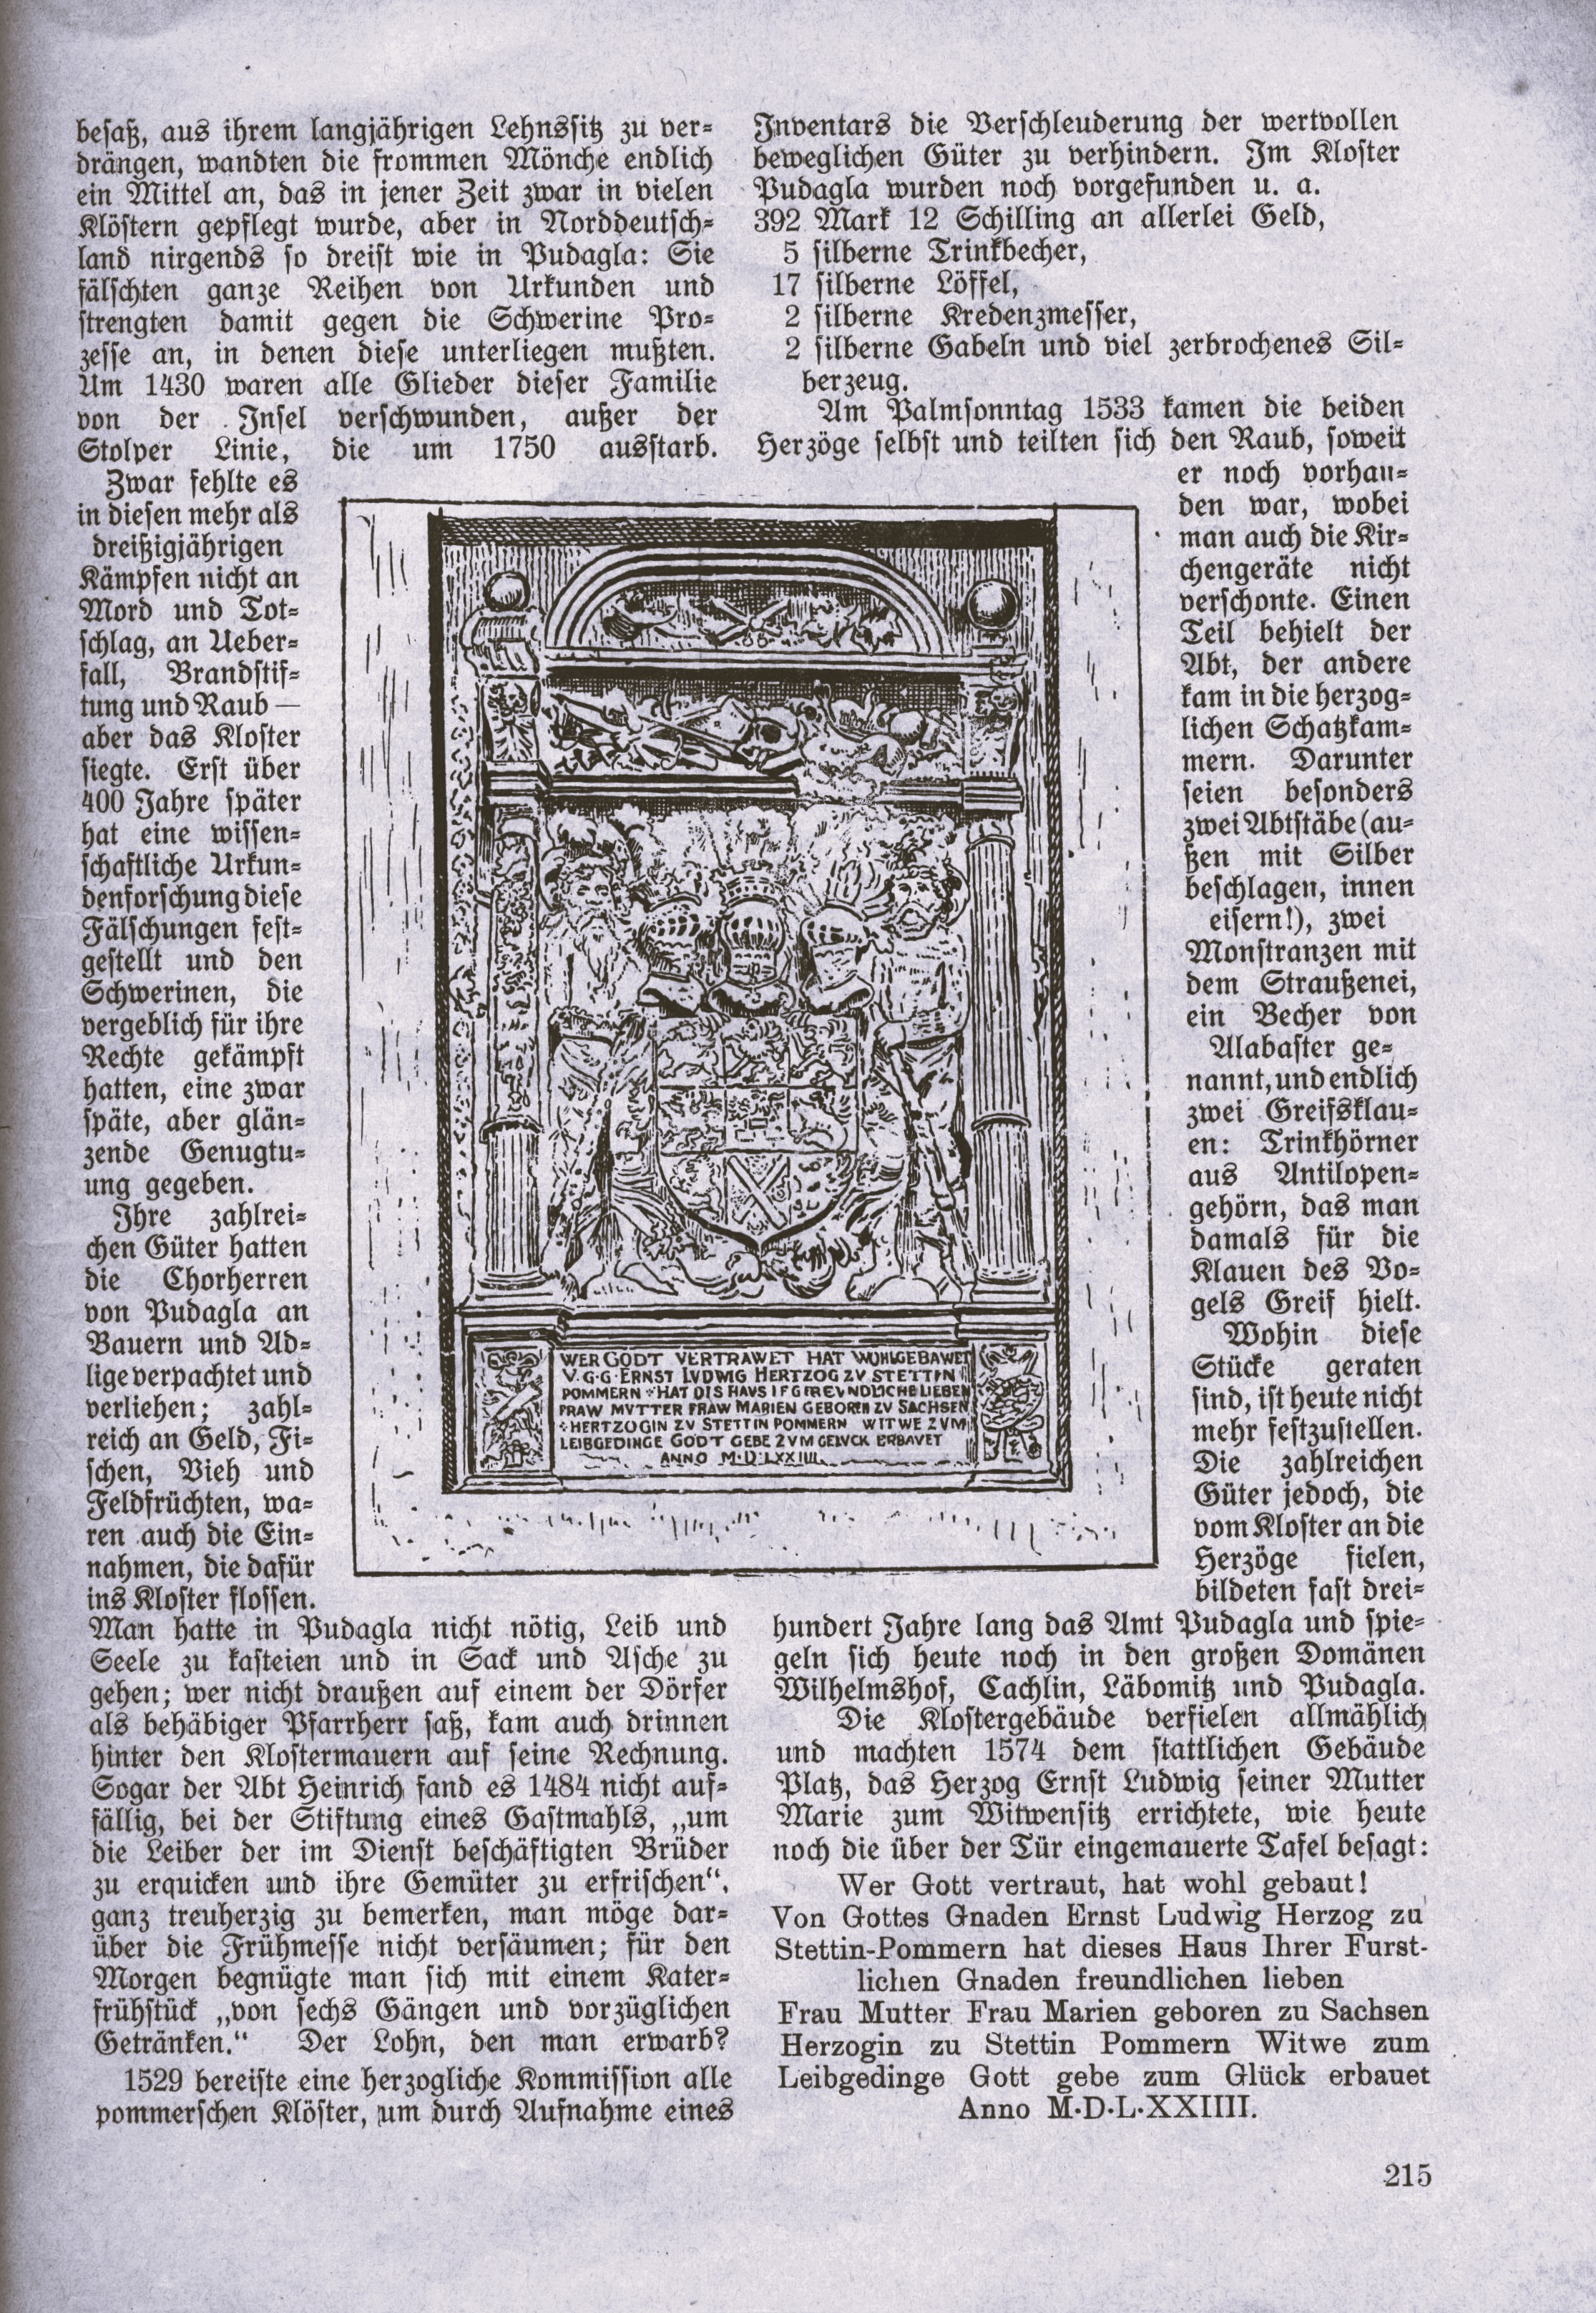 besaß, aus ihrem langjährigen Lehnssitz zu ver=
drängen, wandten die frommen Mönche endlich
ein Mittel an, das in jener Zeit zwar in vielen
Klöstern gepflegt wurde, aber in Norddeutsch=
land nirgends so dreist wie in Pudagla: Sie
fälschten ganze Reihen von Urkunden und
strengten damit gegen die Schwerine Pro=
zesse an, in denen diese unterliegen mußten.
Um 1430 waren alle Glieder dieser Familie
von der Insel verschwunden, außer der
Stolper Linie, die um 1750 ausstarb.
Zwar fehlte es
in diesen mehr als
dreißigjährigen
Kämpfen nicht an
Mord und Tot=
schlag, an Ueber=
fall, Brandstif=
tung und Raub —
aber das Kloster
siegte. Erst über
400 Jahre später
hat eine wissen=
schaftliche Urkun=
denforschung diese
Fälschungen fest=
gestellt und den
Schwerinen, die
vergeblich für ihre
Rechte gekämpft
hatten, eine zwar
späte, aber glän=
zende Genugtu=
ung gegeben.
Ihre zahlrei=
chen Güter hatten
die Chorherren
von Pudagla an
Bauern und Ad=
lige verpachtet und
verliehen; zahl=
reich an Geld, Fi=
schen, Vieh und
Feldfrüchten, wa=
ren auch die Ein=
nahmen, die dafür
ins Kloster flossen.
Man hatte in Pudagla nicht nötig, Leib und
Seele zu kasteien und in Sack und Asche zu
gehen; wer nicht draußen auf einem der Dörfer
als behäbiger Pfarrherr saß, kam auch drinnen
hinter den Klostermauern auf seine Rechnung.
Sogar der Abt Heinrich fand es 1484 nicht auf=
fällig, bei der Stiftung eines Gastmahls, „um
die Leiber der im Dienst beschäftigten Brüder
zu erquicken und ihre Gemüter zu erfrischen“,
ganz treuherzig zu bemerken, man möge dar=
über die Frühmesse nicht versäumen; für den
Morgen begnügte man sich mit einem Kater=
frühstück „von sechs Gängen und vorzüglichen
Getränken.“ Der Lohn, den man erwarb?
1529 bereiste eine herzogliche Kommission alle
pommerschen Klöster, um durch Aufnahme eines
Inventars die Verschleuderung der wertvollen
beweglichen Güter zu verhindern. Im Kloster
Pudagla wurden noch vorgefunden u. a.
392 Mark 12 Schilling an allerlei Geld,
5 silberne Trinkbecher,
17 silberne Löffel,
2 silberne Kredenzmesser,
2 silberne Gabeln und viel zerbrochenes Sil=
berzeug.
Am Palmsonntag 1533 kamen die beiden
Herzöge selbst und teilten sich den Raub, soweit
er noch vorhau=
den war, wobei
man auch die Kir=
chengeräte nicht
verschonte. Einen
Teil behielt der
Abt, der andere
kam in die herzog=
lichen Schatzkam=
mern. Darunter
seien besonders
zwei Abtstäbe (au=
ßen mit Silber
beschlagen, innen
eisern!), zwei
Monstranzen mit
dem Straußenei,
ein Becher von
Alabaster ge=
nannt, und endlich
zwei Greifsklau=
en: Trinkhörner
aus Antilopen=
gehörn, das man
damals für die
Klauen des Vo=
gels Greif hielt.
Wohin diese
Stücke geraten
sind, ist heute nicht
mehr festzustellen.
Die zahlreichen
Güter jedoch, die
vom Kloster an die
Herzöge fielen,
bildeten fast drei=
hundert Jahre lang das Amt Pudagla und spie=
geln sich heute noch in den großen Domänen
Wilhelmshof, Cachlin, Läbomitz und Pudagla.
Die Klostergebäude verfielen allmählich
und machten 1574 dem stattlichen Gebäude
Platz, das Herzog Ernst Ludwig seiner Mutter
Marie zum Witwensitz errichtete, wie heute
noch die über der Tür eingemauerte Tafel besagt:
Wer Gott vertraut, hat wohl gebaut!
Von Gottes Gnaden Ernst Ludwig Herzog zu
Stettin-Pommern hat dieses Haus Ihrer Furst-
lichen Gnaden freundlichen lieben
Frau Mutter Frau Marien geboren zu Sachsen
Herzogin zu Stettin Pommern Witwe zum
Leibgedinge Gott gebe zum Glück erbauet
Anno M·D·L·XXIIII.
WER GODT VERTRAWET HAT WOHLGEBAWET
V·G·G·ERNST LVDWIG HERTZOG ZV STETTIN
POMMERN HAT DIS HAVS I F G FREVNDLICHE LIEBEN
FRAW MVTTER FRAW MARIEN GEBOREN ZV SACHSEN
HERTZOGIN ZV STETTIN POMMERN WITWE ZVM
LEIBGEDINGE GODT GEBE ZVM GELVCK ERBAVET
ANNO M·D·LXXIIII
215